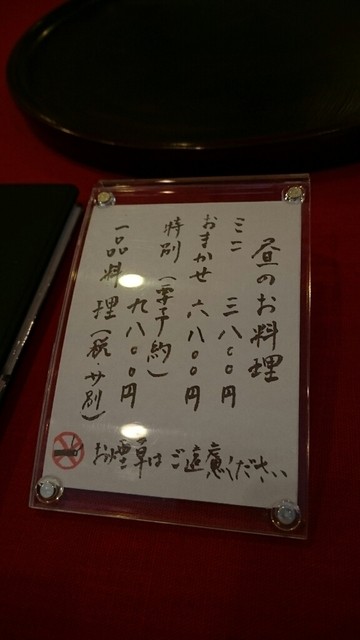 昼のお料理
ミニ 三八〇〇円
おまかせ 六八〇〇円
特別(要予約) 九八〇〇円
一品料理(税サ別)
お煙草はご遠慮ください